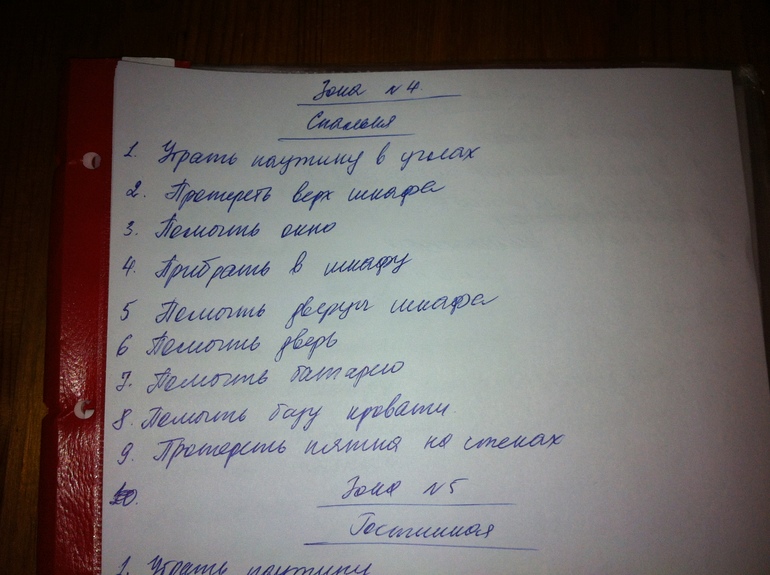 Зона №4
Спальня
1. Убрать паутину в углах
2. Протереть верх шкафа
3. Помыть окно
4. Прибрать в шкафу
5 Помыть дверцы шкафа
6 Помыть дверь
7. Помыть батарею
8. Помыть базу кровати.
9. Протереть пятна на стенах
10.
Зона №5
Гостинная
1. Убрать паутину